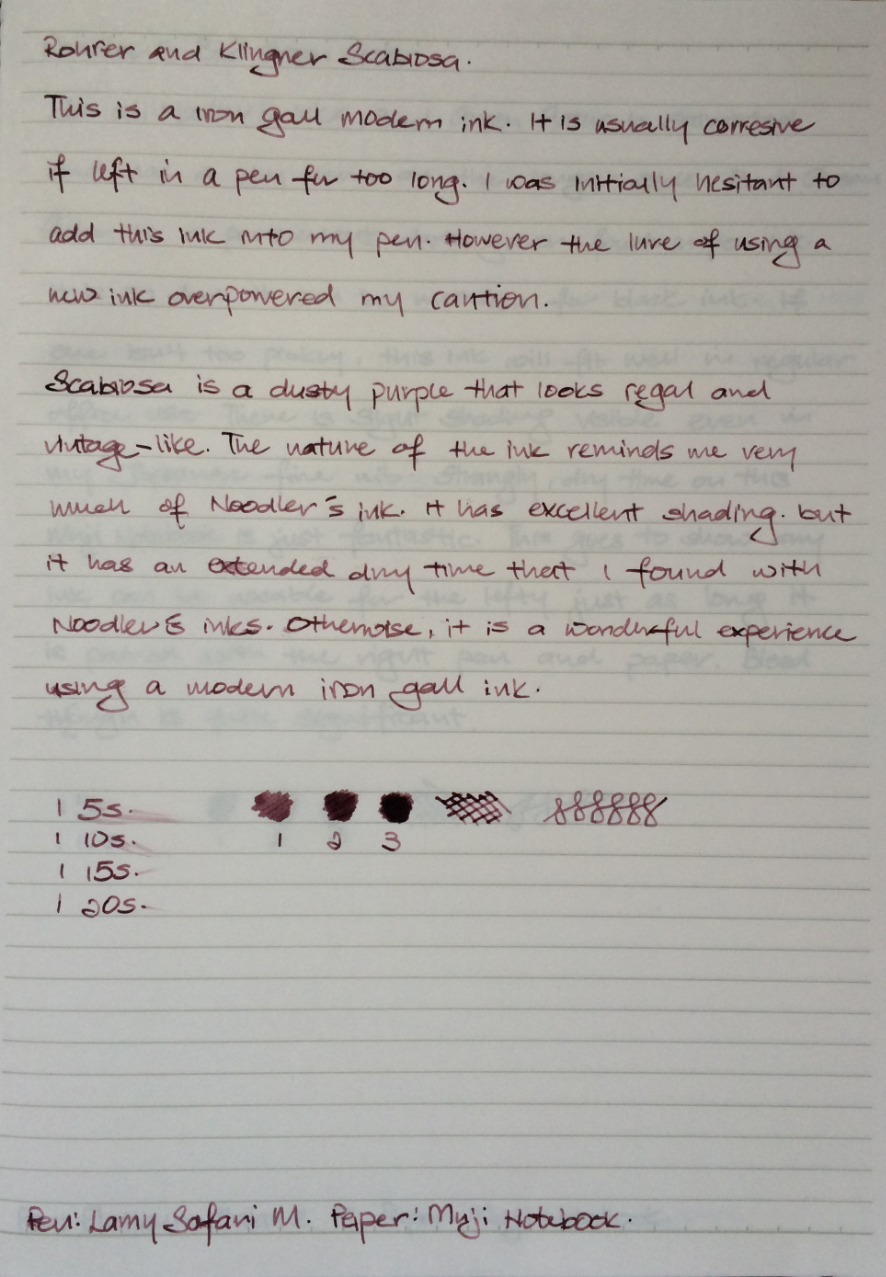 Rohrer and Klingner Scabiosa.
This is a iron gall modern ink. It is usually corresive
if left in a pen for too long. I was initially hesitant to
add this ink into my pen. However the lure of using a
new ink overpowered my caution.
Scabiosa is a dusty purple that looks regal and
vintage-like. The nature of the ink reminds me very
much of Noodler's ink. It has excellent shading. but
it has an extended dry time that I found with
Noodler's inks. Otherwise, it is a wonderful experience
using a modern iron gall ink.
1 5s.
1 10s. 1 2 3
1 15s.
1 20s.
Pen: Lamy Safari M. Paper: Muji Notebook.